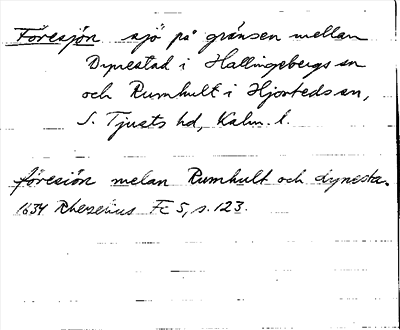 Föresjön sjö på gränsen mellan
Dynestad i Hallingebergs sn
och Rumhult i Hjorteds sn,
S. Tjusts hd, Kalm. l.
föresiön melan Rumhult och dynesta.
1634 Rhezelius Fc 5, s. 123.